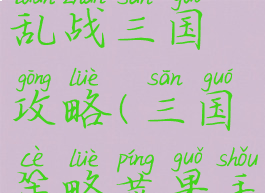 luàn zhàn sān guó
乱战三国
gōng lüè sān guó
攻略(三国
cè lüè píng guǒ shǒu
策略苹果手